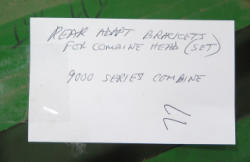 REPAR ADAPT BRACKETS
FOR COMBINE HEAD (SET)
9000 SERIES COMBINE